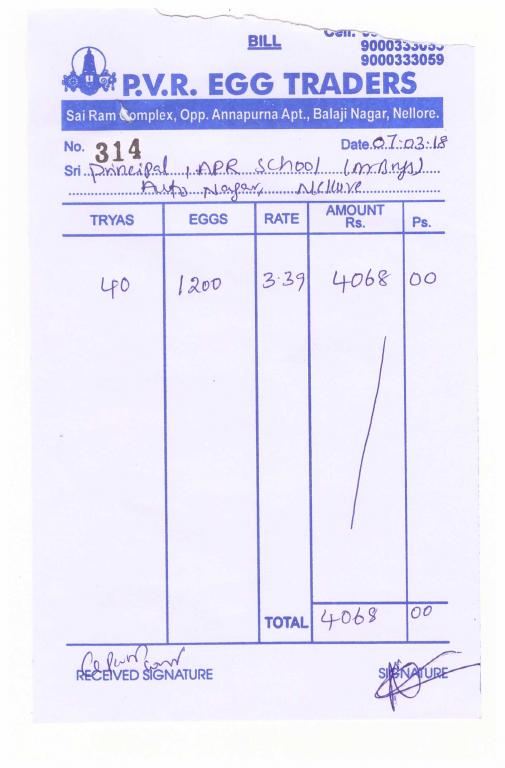 BILL
Cell:
9000333059
P.V.R. EGG TRADERS
Sai Ram Complex, Opp. Annapurna Apt., Balaji Nagar, Nellore.
No. 314 Date.07.03.18
Sri Principal, APR School
Auto Nagar, Nellore
TRYAS EGGS RATE AMOUNT Rs. Ps.
40 1200 3.39 4068 00
TOTAL 4068 00
RECEIVED SIGNATURE SIGNATURE